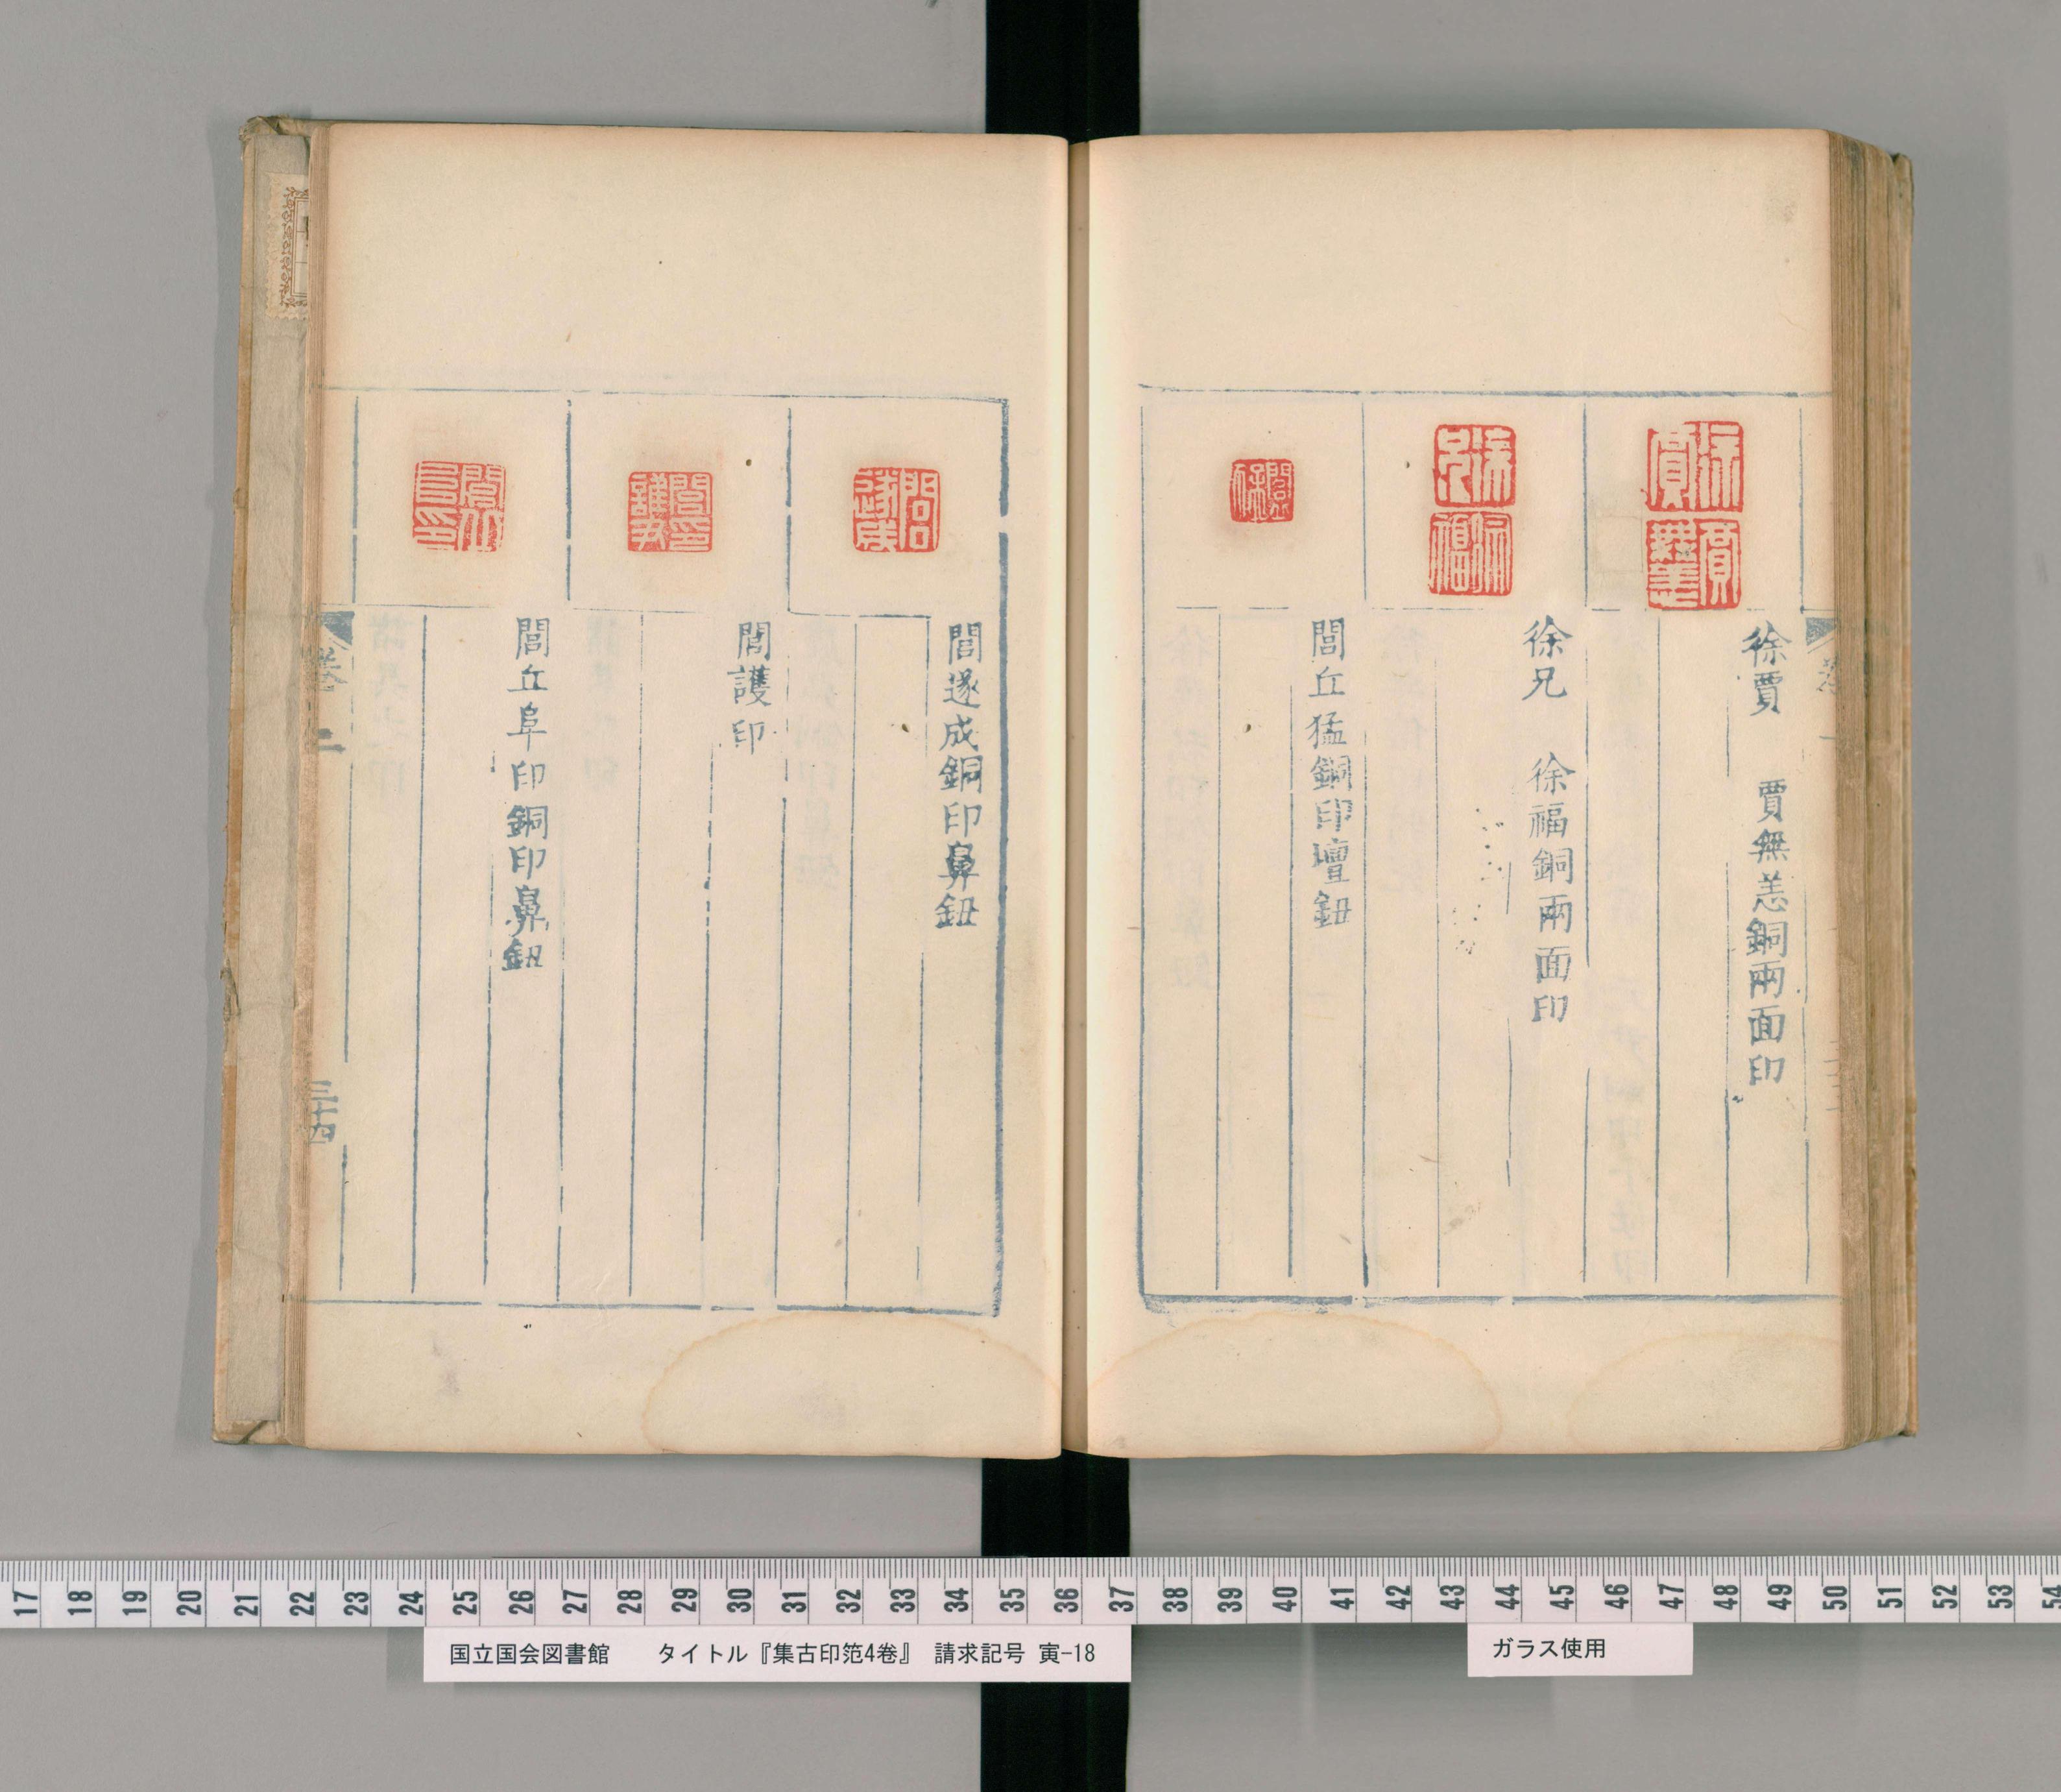 徐賈　賈無恙銅兩面印
徐兄　徐福銅兩面印
閭丘猛銅印壇鈕
閭遂成銅印鼻鈕
閭護印
閭丘阜印銅印鼻鈕
卷二
三十四
17 18 19 20 21 22 23 24 25 26 27 28 29 30 31 32 33 34 35 36 37 38 39 40 41 42 43 44 45 46 47 48 49 50 51 52 53 54
国立国会図書館　タイトル『集古印笵4巻』　請求記号 寅-18
ガラス使用